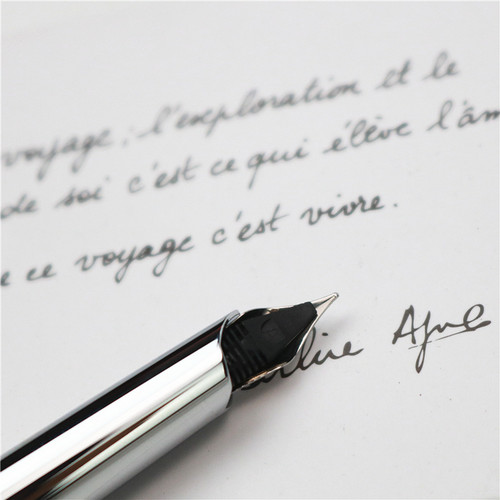 voyage, l'exploration et le
de soi c'est ce qui élève l'âm
ce voyage c'est vivre.